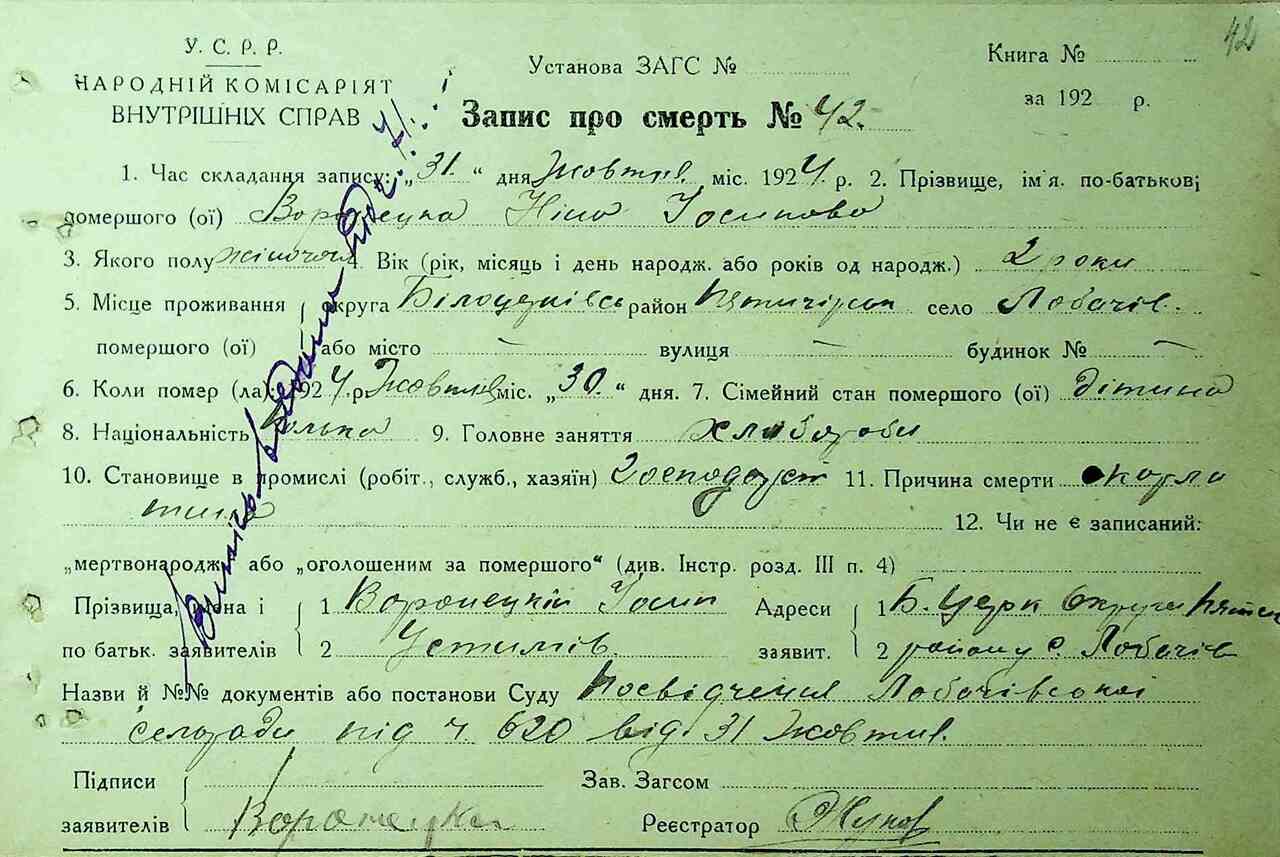 42
У. С. Р. Р.
НАРОДНІЙ КОМІСАРІЯТ
ВНУТРІШНІХ СПРАВ
Установа ЗАГС №
Книга №
за 192 р.
Запис про смерть № 42.
1. Час складання запису: „31.“ дня Жовтня міс. 1924. р. 2. Прізвище, ім'я. по-батькові
помершого (ої) Воронецка Ніна Йосипова
3. Якого полу жіночого 4. Вік (рік, місяць і день народж. або років од народж.) 2 роки
5. Місце проживання округа Білоцерківсь район Пятигірськ село Лобачів.
помершого (ої) або місто — вулиця — будинок № —
6. Коли помер (ла): 1924 р. Жовтня міс. „30.“ дня. 7. Сімейний стан помершого (ої) дітина
8. Національність Полька 9. Головне заняття хлібороби
10. Становище в промислі (робіт., служб., хазяїн) Господарст 11. Причина смерти скарла
тина
12. Чи не є записаний:
„мертвонародж.“ або „оголошеним за помершого“ (див. Інстр. розд. III п. 4)
Прізвища, імена і 1 Воронецкій Йосип Адреси 1 Б. Церк Округи
по батьк. заявителів 2 Устимів. заявит. 2 району с. Лобачів
Назви й №№ документів або постанови Суду Посвідчення Лобачівської
сельради під ч. 620 від 31 Жовтня.
Підписи
Зав. Загсом
заявителів Воронецкий Реєстратор